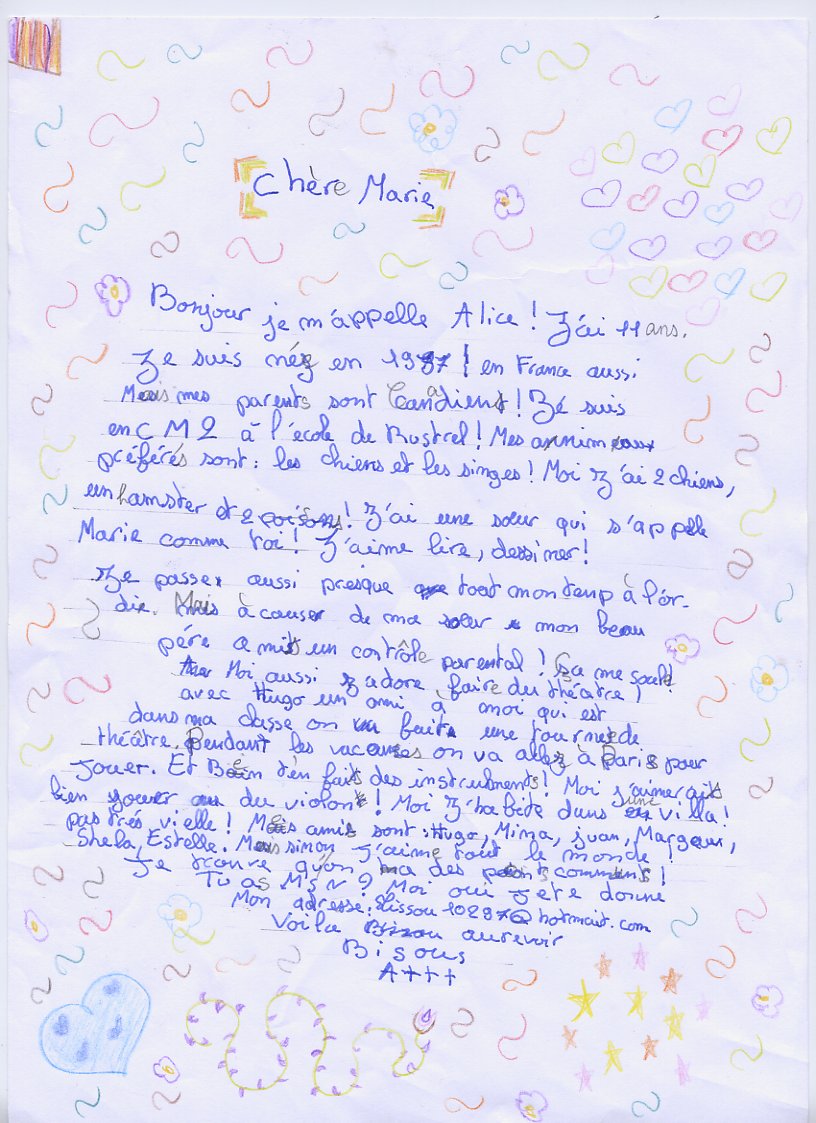 Chère Marie
Bonjour je m'appelle Alice ! J'ai 11 ans.
Je suis née en 1997 ! en France aussi
Mais mes parents sont Canadient ! Jé suis
en CM2 à l'école de Rustrel ! Mes annimeaux
préférés sont : les chiens et les singes ! Moi J'ai 2 chiens,
un hamster et 2 poisons ! J'ai une sœur qui s'appelle
Marie comme toi ! J'aime lire, dessiner !
Je passe aussi presque tout mon temp à l'or-
die. Mais à cause de ma sœur mon beau
père a mit un contrôle parental ! Ça me soule !
Moi aussi J'adore faire du théatre !
avec Hugo un ami à moi qui est
dans ma classe on fait une tournée de
théâtre. Pendant les vacances on va allez à Paris pour
Jouer. Et Bien t'en fait des instruments ! Moi j'aimerait
bien jouer du violon ! Moi J'habite dans une villa !
pas très vielle ! Mes amis sont : Hugo, Mima, juan, Margaux,
Shela, Estelle. Mais sinon J'aime tout le monde !
Je trouve qu'on a des points commens !
Tu as MSN ? Moi oui Je te donne
Mon adresse : lissou10297@hotmail.com
Voila aurevoir
Bisous
A+++